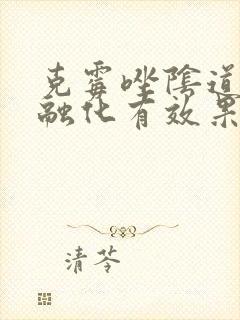 克霉唑陰道
融化有效果
清苓